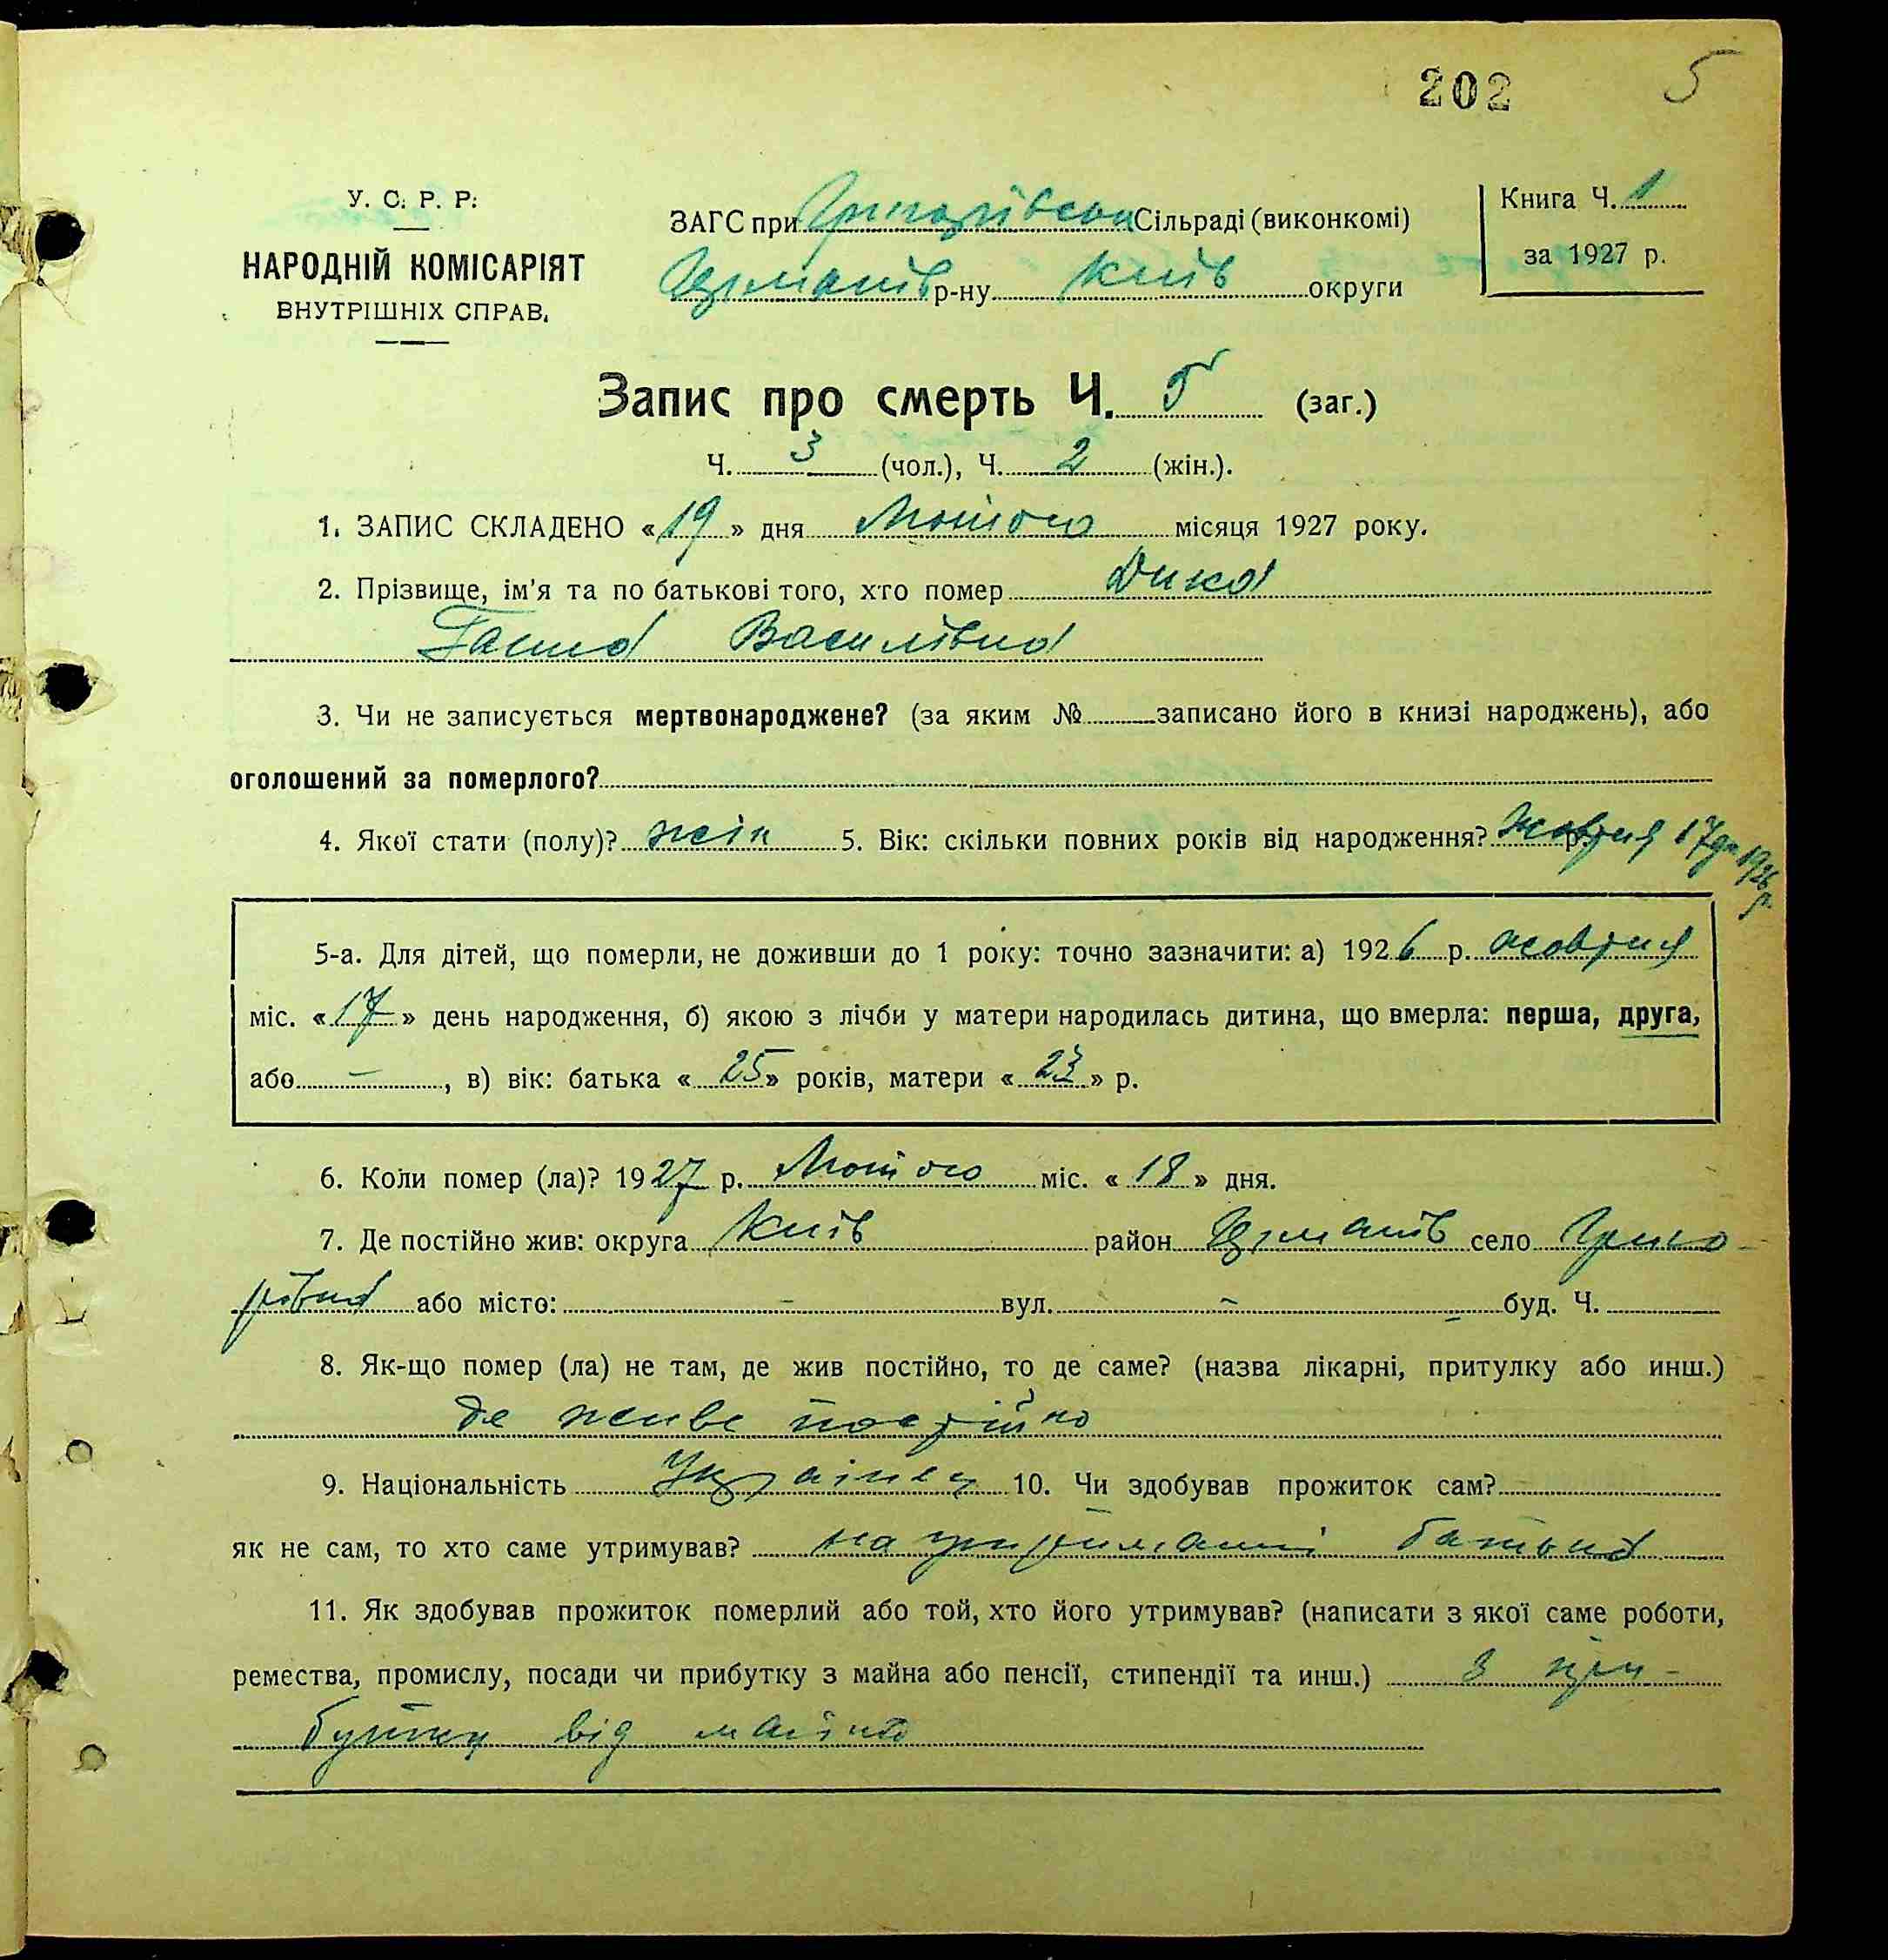 202 5
У. С. Р. Р.
НАРОДНІЙ КОМІСАРІЯТ
ВНУТРІШНІХ СПРАВ.
ЗАГС при Григорівськ Сільраді (виконкомі)
Германів р-ну Київ округи
Книга Ч. 1
за 1927 р.
Запис про смерть Ч. 5 (заг.)
Ч. 3 (чол.), Ч. 2 (жін.).
1. ЗАПИС СКЛАДЕНО «19» дня Лютого місяця 1927 року.
2. Прізвище, ім'я та по батькові того, хто помер Дика
Ганна Василівна
3. Чи не записується мертвонароджене? (за яким № записано його в книзі народжень), або
оголошений за померлого?
4. Якої стати (полу)? жін 5. Вік: скільки повних років від народження? Жовтня р. 17 дн 1926 р.
5-а. Для дітей, що померли, не доживши до 1 року: точно зазначити: а) 1926 р. жовтня
міс. «17» день народження, б) якою з лічби у матери народилась дитина, що вмерла: перша, друга,
або –, в) вік: батька «25» років, матери «23» р.
6. Коли помер (ла)? 1927 р. Лютого міс. «18» дня.
7. Де постійно жив: округа Київ район Германів село Григо-
рівка або місто: – вул. – буд. Ч.
8. Як-що помер (ла) не там, де жив постійно, то де саме? (назва лікарні, притулку або инш.)
де живе постійно
9. Національність Українка 10. Чи здобував прожиток сам?
як не сам, то хто саме утримував? на утриманні батька
11. Як здобував прожиток померлий або той, хто його утримував? (написати з якої саме роботи,
ремества, промислу, посади чи прибутку з майна або пенсії, стипендії та инш.) З при-
бутку від майна